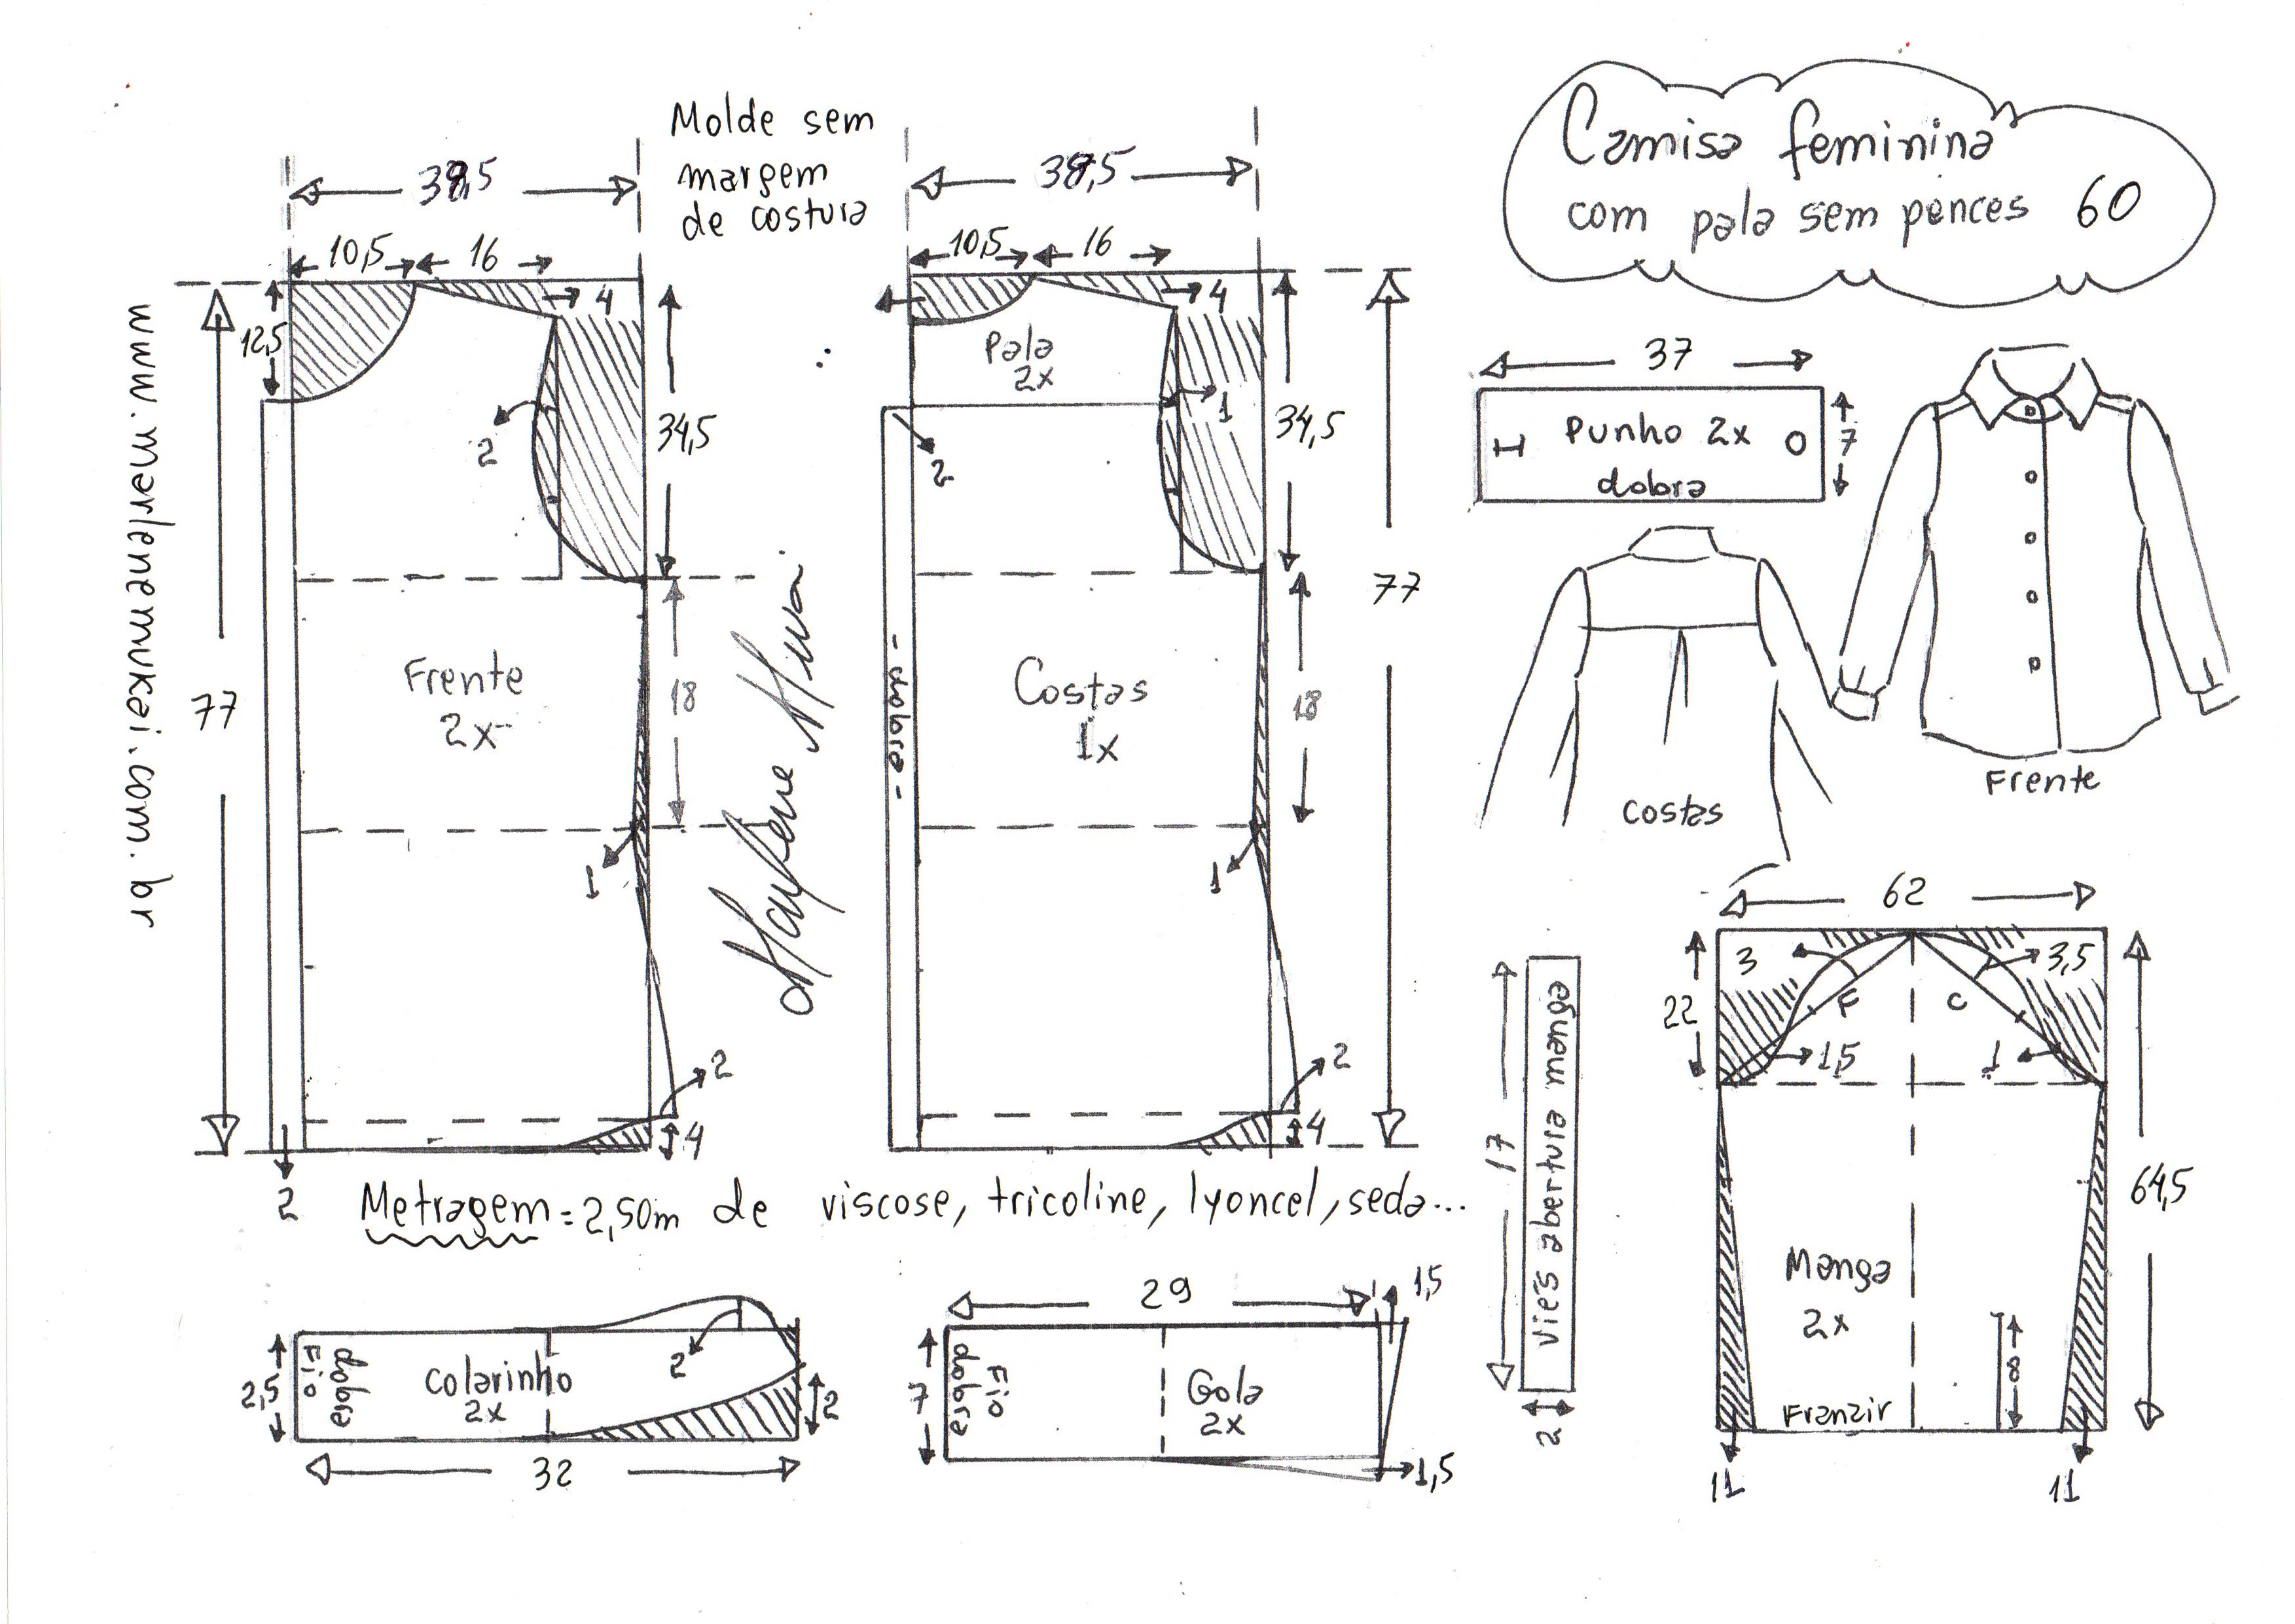 Camisa feminina
com pala sem pences 60
Molde sem
margem
de costura
38,5
10,5
16
4
12,5
34,5
2
Frente
2x
18
77
1
2
4
2
www.marlenemukai.com.br
38,5
10,5
16
4
Pala
2x
1
34,5
2
- dobra -
Costas
1x
18
77
1
2
4
37
Punho 2x
dobra
7
Costas
Frente
Metragem = 2,50m de viscose, tricoline, lyoncel, seda...
2,5
Fio
dobra
Colarinho
2x
2
2
32
29
1,5
7
dobra
Fio
Gola
2x
1,5
17
Viés abertura manga
2
62
3
3,5
22
F
C
1,5
1
64,5
Manga
2x
8
Franzir
11
11